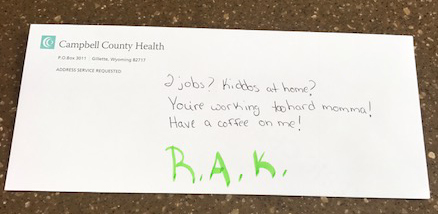 Campbell County Health
P.O. Box 3011 Gillette, Wyoming 82717
ADDRESS SERVICE REQUESTED
2 jobs? Kiddos at home?
You're working too hard momma!
Have a coffee on me!
R.A.K.